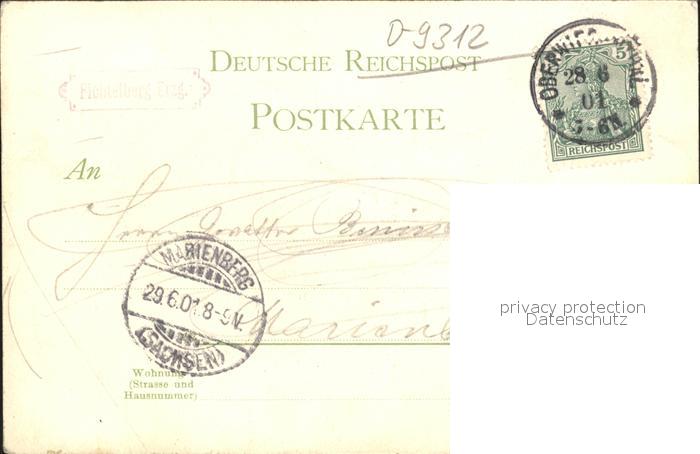 D 9312
DEUTSCHE REICHSPOST
Fichtelberg Erzg.
POSTKARTE
28 6
01
5-6N.
5
REICHSPOST
An
Herrn
MARIENBERG
29.6.01.8-9N.
(SACHSEN)
Marienb
Wohnung
(Strasse und
Hausnummer)
privacy protection
Datenschutz